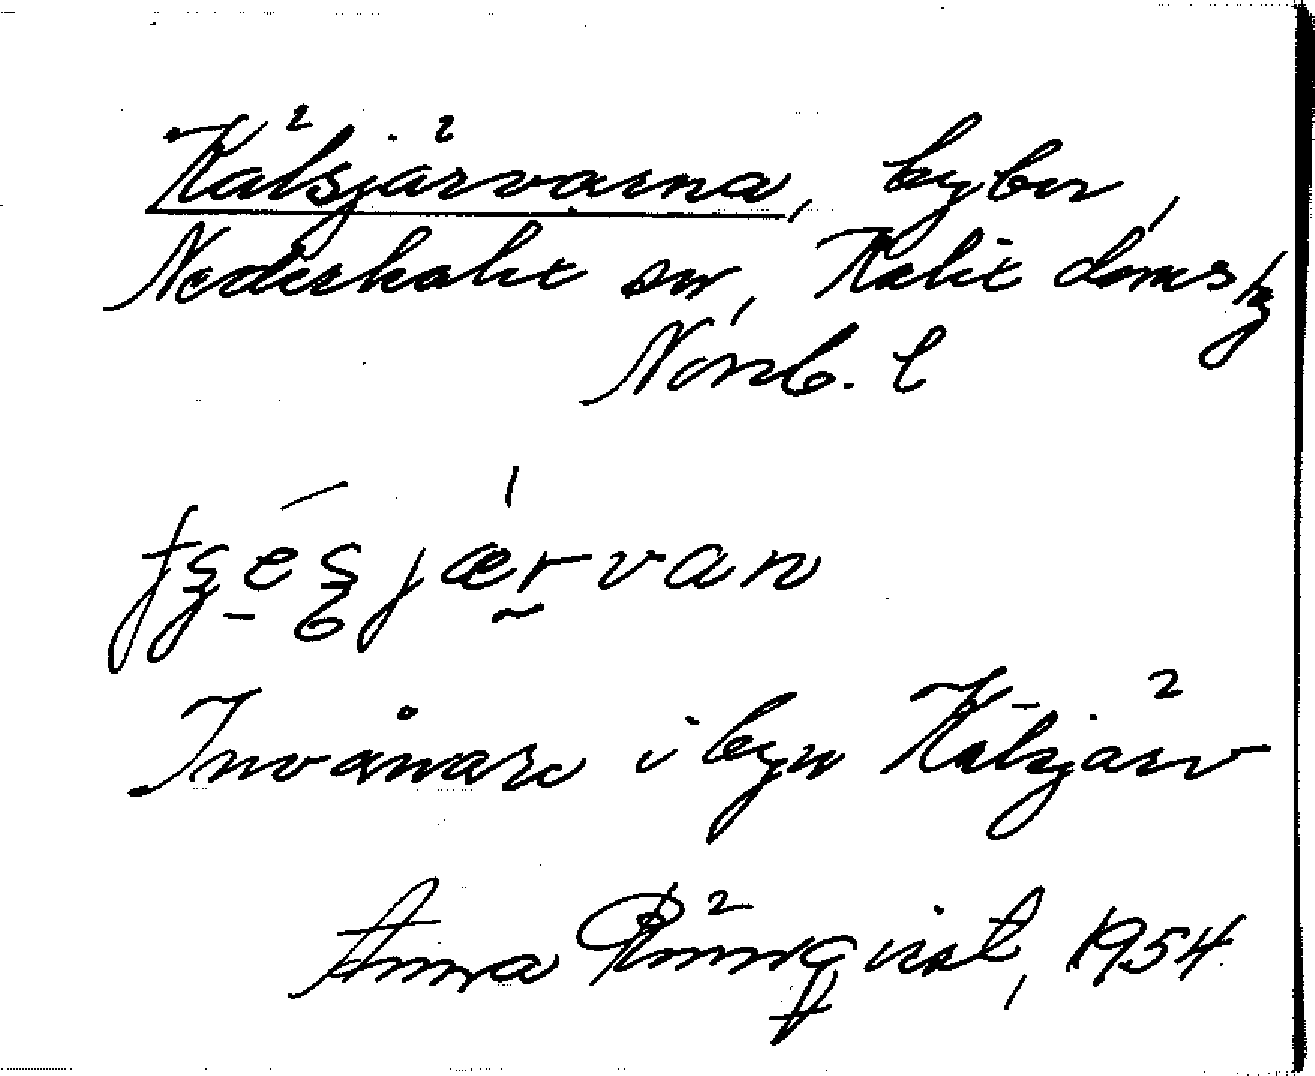 Kälsjärvarna, byber,
Nederkalix sn, Kalix doms
Norrb. l
Invånare i byn Kälsjärv
Anna Rönnqvist, 1954